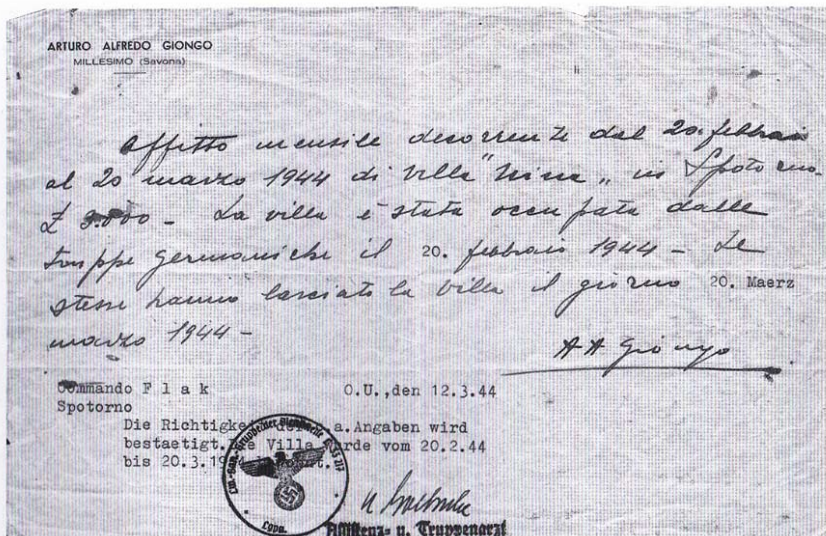 ARTURO ALFREDO GIONGO
MILLESIMO (Savona)
Affitto mensile decorrente dal 20. febbraio
al 20 marzo 1944 di Villa "Nina" in Spotorno
£ 3.000 - La villa è stata occupata dalle
truppe germaniche il 20. febbraio 1944 - Le
stesse hanno lasciato la villa il giorno 20. Maerz
marzo 1944 -
A A Giongo
Commando F l a k O.U.,den 12.3.44
Spotorno
Die Richtigkeit .a.Angaben wird
bestaetigt. Villa vom 20.2.44
bis 20.3.
Assistenz- u. Truppenarzt